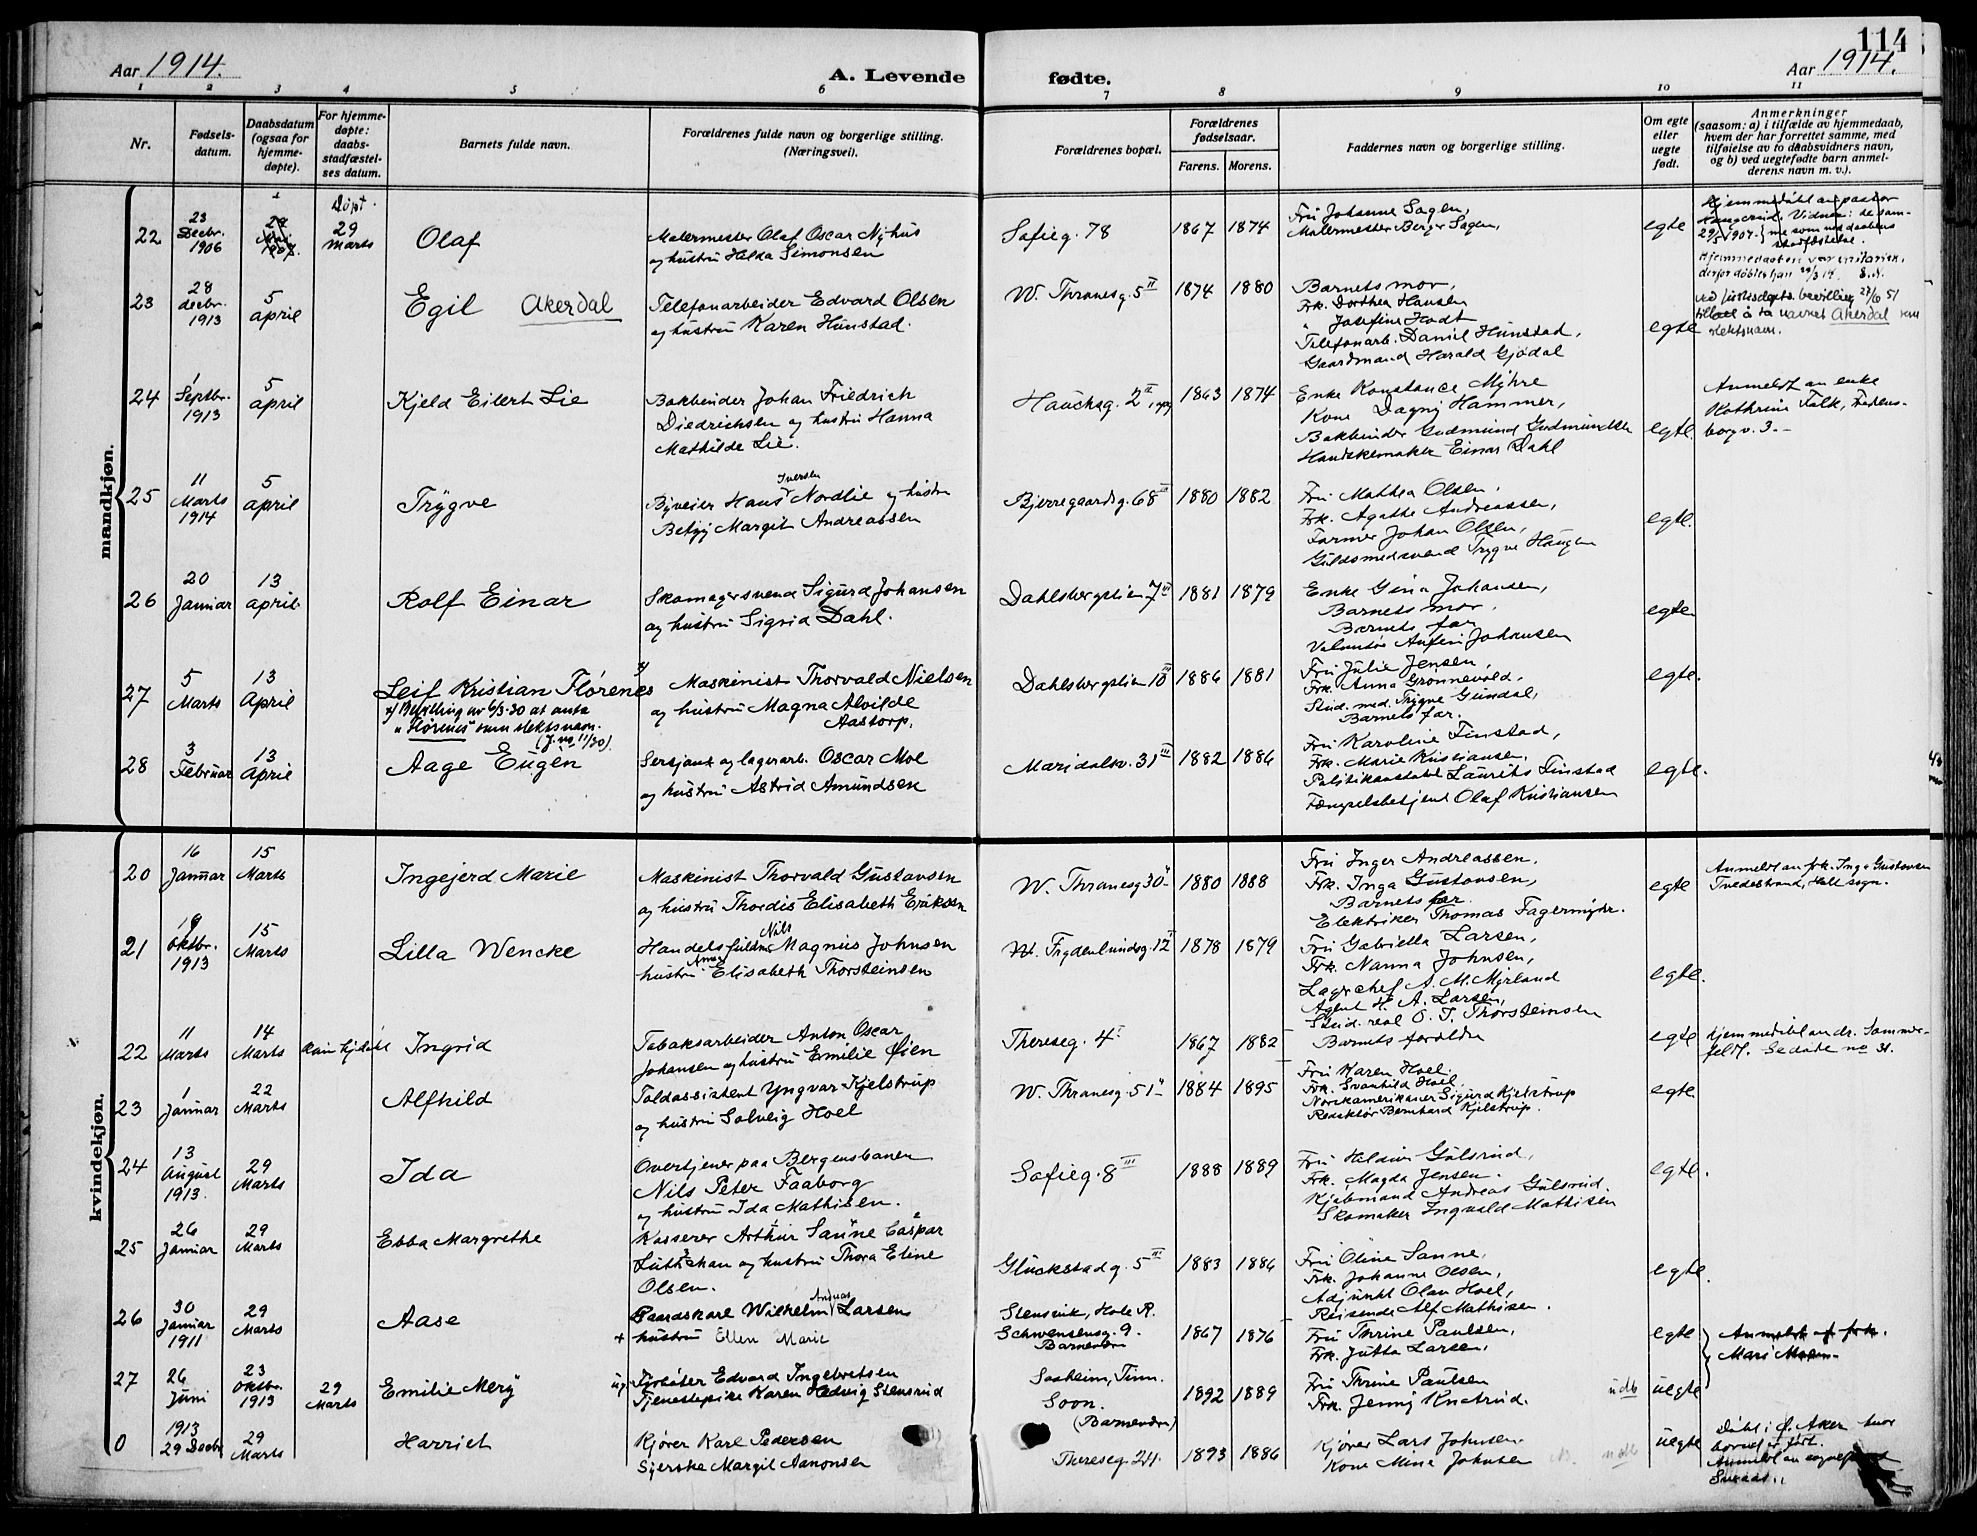 114
Aar 1914.
A. Levende fødte.
Aar 1914.
1 2 3 4 5 6 7 8 9 10 11
Nr.
Fødsels-
datum.
Daabsdatum
(ogsaa for
hjemme-
døpte).
For hjemme-
døpte:
daabs-
stadfæstel-
ses datum.
Barnets fulde navn.
Forældrenes fulde navn og borgerlige stilling.
(Næringsvei).
Forældrenes bopæl.
Forældrenes
fødselsaar.
Farens. Morens.
Faddernes navn og borgerlige stilling.
Om egte
eller
uegte
født.
Anmerkninger
(saasom: a) i tilfælde av hjemmedaab,
hvem der har forrettet samme, med
tilføielse av to daabsvidners navn,
og b) ved uegtefødte barn anmel-
derens navn m. v.).
mandkjøn.
22
23
Decbr.
1906
29
1907.
Døpt.
29
Marts
Olaf
Malermester Olaf Oscar Nyhus
og hustru Hilda Simonsen
Sofieg. 78
1867 1874
Fru Johanne Sagen,
Malermester Berger Sagen,
egte
Hjemmedøbt av pastor
Vidner: de sam-
29/5 1907. me som ved daabens
stadfæstelse.
Hjemmedaaben var unitarisk,
derfor døbtes han 29/3 14.
23
28
decbr.
1913
5
april
Egil Akerdal
Telefonarbeider Edvard Olsen
og hustru Karen Hunstad.
W. Thranesg. 5 II
1874 1880
Barnets mor,
Frk. Dorthea Hansen
" Josefine Hodt
Telefonarb. Daniel Hunstad,
Gaardmand Harald Gjødal
egte
ved justisdepts. bevilling 27/6 51
tillatt å ta navnet Akerdal som
slektsnavn.
24
1
Septbr.
1913
5
april
Kjeld Eilert Lie
Bokbinder Johan Friedrich
Diedrichsen og hustru Hanna
Mathilde Lie.
Hauchsg. 2 II
1863 1874
Enke Konstance Myhre
Kone Dagny Hammer,
Bokbinder Gudmund Gudmundsen
Handskemaker Einar Dahl
egte.
Anmeldt av enke
Kathrine Falk, Fredens-
borgv. 3.-
25
11
Marts
1914
5
april
Trygve
Iversen
Byveier Hans Nordlie og hustru
Betzy Margit Andreassen
Bjerregaardsg. 68 III
1880 1882
Fru Mathea Olsen,
Frk. Agathe Andreassen,
Farmer Johan Olsen,
Guldsmedsvend Trygve Haugen
egte.
26
20
Januar
13
april.
Rolf Einar
Skomagersvend Sigurd Johansen
og hustru Sigrid Dahl.
Dahlsbergstien 7 III
1881 1879
Enke Gina Johansen,
Barnets mor.
Barnets far
Johansen
egte
27
5
Marts
13
April
Leif Kristian Flørenes x)
x) Bevilling av 6/3-30 at anta
"Flørenes" som slektsnavn.
(J.no 11/30)
Maskinist Thorvald Nielsen
og hustru Magna Alvilde
Aastorp.
Dahlsbergstien 10 III
1886 1881
Fru Julie Jensen,
Frk. Anna Grønnevold,
Stud. med. Trygve Gundal,
Barnets far.
egte.
28
3
Februar
13
April
Aage Eugen
Sersjant og lagerarb. Oscar Moe
og hustru Astrid Amundsen
Maridalsv. 31 III
1882 1886
Fru Karoline Finstad,
Frk. Marie Kristiansen,
Politikonstabel Laurits Finstad
Fængselsbetjent Olaf Kristiansen
egte.
kvindekjøn.
20
16
Januar
15
Marts
Ingejerd Marie
Maskinist Thorvald Gustavsen
og hustru Thordis Elisabeth Eriksen
W. Thranesg 30 II
1880 1888
Fru Inger Andreassen,
Frk. Inga Gustavsen,
Barnets far.
Elektriker Thomas Fagermyhr.
egte
Anmeldt av frk. Inga Gustavsen
Tvedestrand, Holt sogn.
21
19
Oktbr.
1913
15
Marts
Lilla Wencke
Nils
Handelsfuldm. Magnus Johnsen
Anna
hustru Elisabeth Thorsteinsen
Frydenlundsg. 12 II
1878 1879
Fru Gabriella Larsen,
Frk. Nanna Johnsen,
Lagerchef A. M. Myrland
Agent H. A. Larsen,
Stud. real O. T. Thorsteinsen
egte.
22
11
Marts
14
Marts
Ingrid
Tobaksarbeider Anton Oscar
Johansen og hustru Emilie Øien
Thereseg. 4 I
1867 1882
Barnets forældre
egte
Hjemmedøbt av dr. Sommer-
feldt. Se døde no 31.
23
1
Januar
22
Marts
Alfhild
Toldassistent Yngvar Kjelstrup
og hustru Solveig Hoel
W. Thranesg. 51 II
1884 1895
Fru Karen Hoel.
Frk. Svanhild Hoel
Norskamerikaner Sigurd Kjelstrup
Redaktør Bernhard Kjelstrup.
egte
24
13
August
1913.
29
Marts
Ida
Overtjener paa Bergensbanen
Nils Peter Faaborg
og hustru Ida Mathisen.
Sofieg. 8 III
1888 1889
Fru Gulsrud,
Frk. Magda Jensen.
Kjøbmand Andreas Gulsrud.
Skomaker Ingvald Mathisen
egte.
25
26
Januar
29
Marts
Ebba Margrethe
Kasserer Arthur Sanne Caspar
og hustru Thora Eline
Olsen.
Glückstadg. 5 III
1883 1886
Fru Oline Sanne,
Frk. Johanne Olsen,
Adjunkt Olav Hoel,
Reisende Alf Mathisen.
egte.
26
30
Januar
1911
29
Marts
Aase
Andreas
Gaardskarl Wilhelm Larsen
+ hustru Ellen Marie
Stensvik, Hole R.
Schwensensg. 9.
Barnevdn
1867 1876
Fru Thrine Paulsen,
Frk. Jutta Larsen,
egte
Anmeldt af frk.
Mari Moen
27
26
Juni
23
Oktbr.
1913
29
Marts
Emilie Mery
ug. Fyrbøter Edvard Ingebretsen
Tjenestepike Karen Hedvig Stensrud
Saaheim, Tinn.
Soon.
(Barnevdn)
1892 1889
Fru Thrine Paulsen
Frk. Jenny Knatrud.
udb
uegte
0
1913
29 Decbr
29
Marts
Harriet
Kjører Karl Pedersen
Syerske Margit Aanonsen
Thereseg. 24.
1893 1886
Kjører Lars Johnsen
Kone Mina Johnsen
udb
uegte
Døbt i Ø. Aker hvor
barnet er ført.
Anmeldt av sogneprest